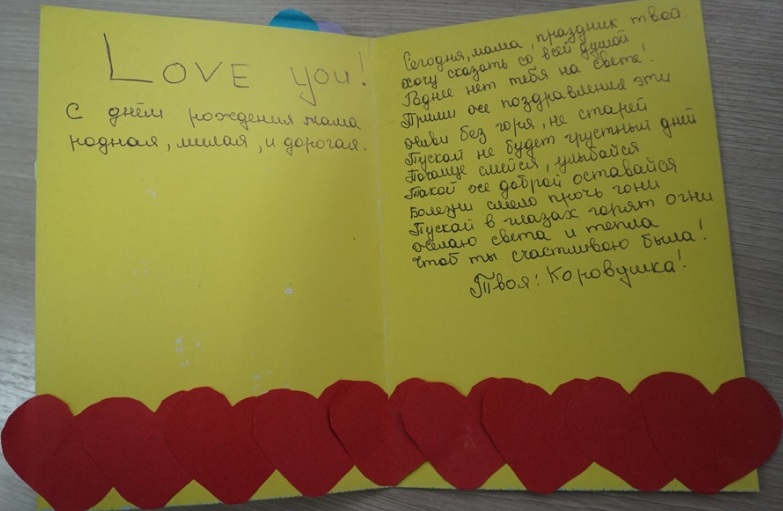 Love you!
С днём рождения мама
родная, милая, и дорогая.
Сегодня, мама, праздник твой.
хочу сказать со всей душой
Роднее нет тебя на свете!
Прими же поздравления эти
живи без горя, не старей
Пускай не будет грустный дней
Почаще смейся, улыбайся
Такой же доброй оставайся
Болезни смело прочь гони
Пускай в глазах горят огни
желаю света и тепла
чтоб ты счастливою была!
Твоя: Коровушка!